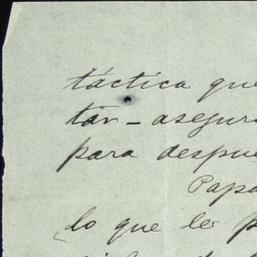 táctica que
tán - asegur
para despue
Papa
lo que le p